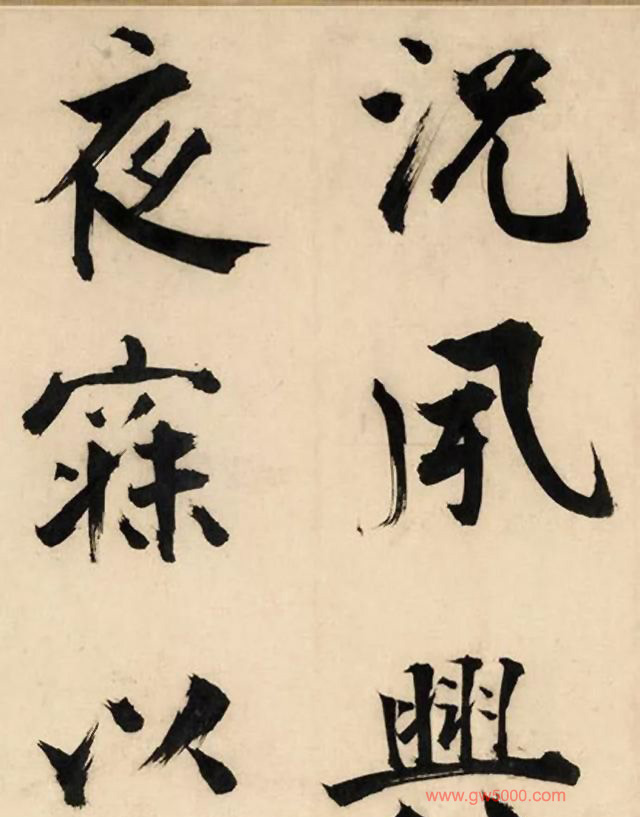 況夙興
夜寐以
www.gw5000.com